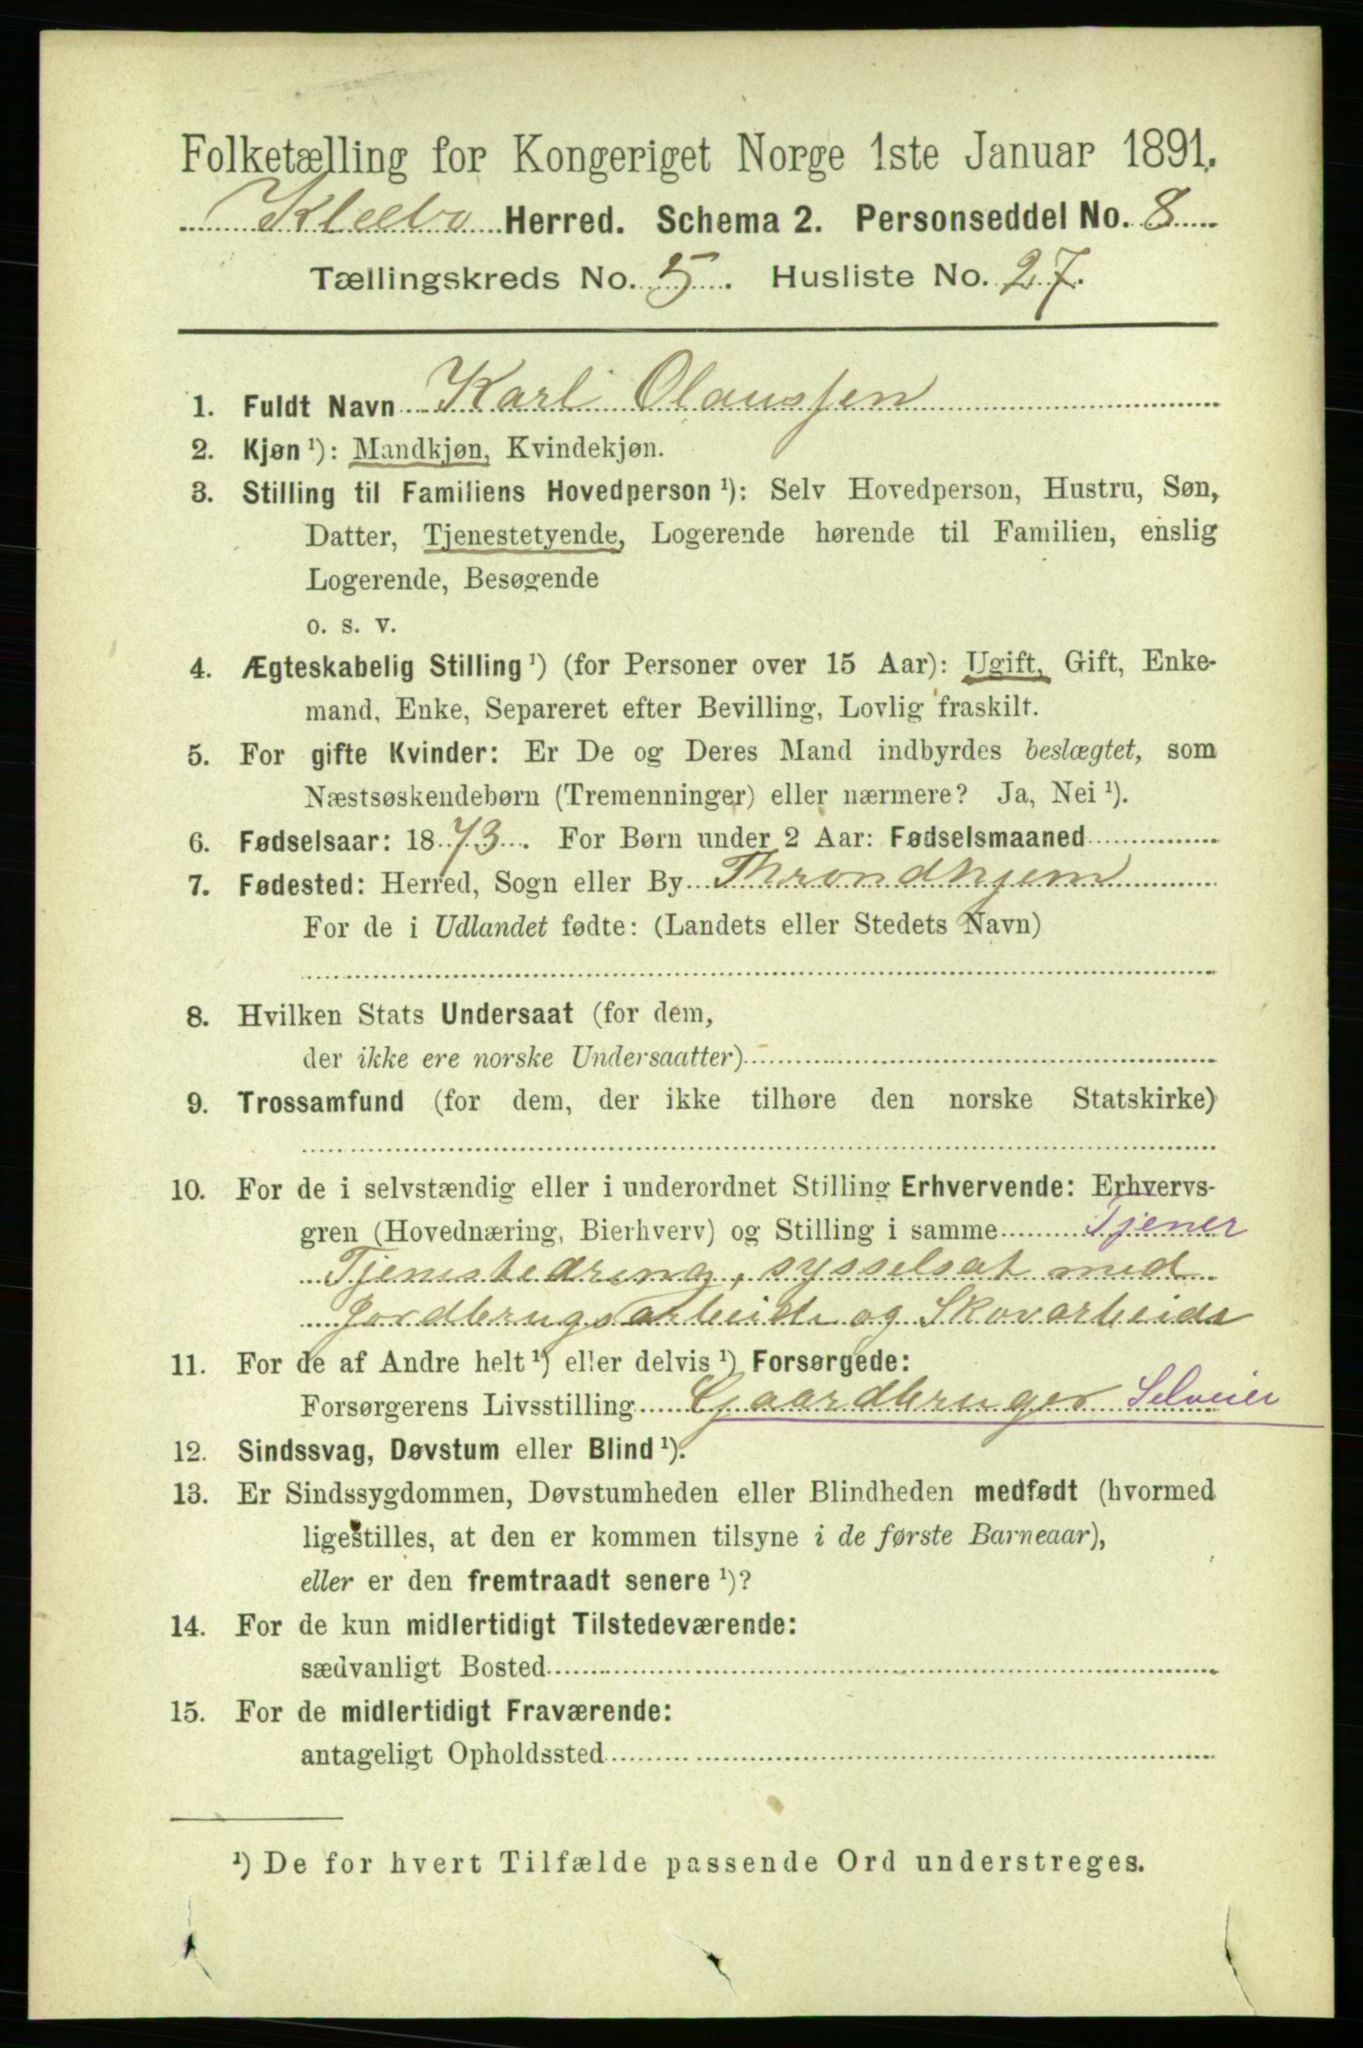 Folketælling for Kongeriget Norge 1ste Januar 1891.
Klæbo Herred. Schema 2. Personseddel No. 8
Tællingskreds No. 5. Husliste No. 27.
1. Fuldt Navn Karl Olaussen
2. Kjøn ¹): Mandkjøn, Kvindekjøn.
3. Stilling til Familiens Hovedperson ¹): Selv Hovedperson, Hustru, Søn,
Datter, Tjenestetyende, Logerende hørende til Familien, enslig
Logerende, Besøgende
o. s. v.
4. Ægteskabelig Stilling ¹) (for Personer over 15 Aar): Ugift, Gift, Enke-
mand, Enke, Separeret efter Bevilling, Lovlig fraskilt.
5. For gifte Kvinder: Er De og Deres Mand indbyrdes beslægtet, som
Næstsøskendebørn (Tremenninger) eller nærmere? Ja, Nei ¹).
6. Fødselsaar: 1873. For Børn under 2 Aar: Fødselsmaaned
7. Fødested: Herred, Sogn eller By Throndhjem
For de i Udlandet fødte: (Landets eller Stedets Navn)
8. Hvilken Stats Undersaat (for dem,
der ikke ere norske Undersaatter)
9. Trossamfund (for dem, der ikke tilhøre den norske Statskirke)
10. For de i selvstændig eller i underordnet Stilling Erhvervende: Erhvervs-
gren (Hovednæring, Bierhverv) og Stilling i samme Tjener
Tjenestedreng, sysselsat med
Jordbrugsarbeide og Skovarbeide
11. For de af Andre helt ¹) eller delvis ¹) Forsørgede:
Forsørgerens Livsstilling Gaardbruger Selveier
12. Sindssvag, Døvstum eller Blind ¹).
13. Er Sindssygdommen, Døvstumheden eller Blindheden medfødt (hvormed
ligestilles, at den er kommen tilsyne i de første Barneaar),
eller er den fremtraadt senere ¹)?
14. For de kun midlertidigt Tilstedeværende:
sædvanligt Bosted
15. For de midlertidigt Fraværende:
antageligt Opholdssted
¹) De for hvert Tilfælde passende Ord understreges.